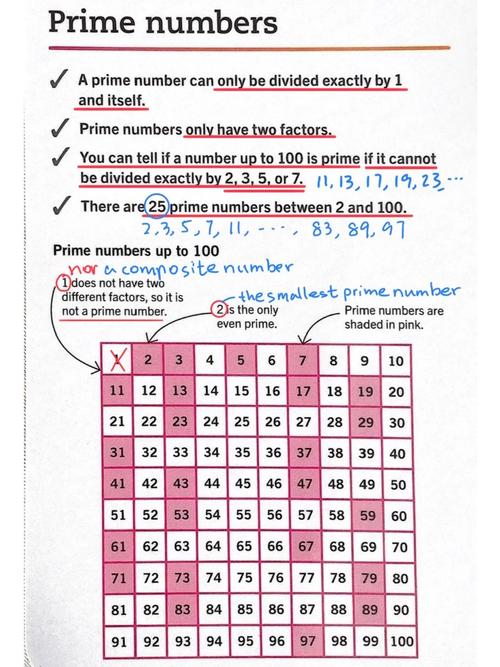 Prime numbers
✓ A prime number can only be divided exactly by 1
and itself.
✓ Prime numbers only have two factors.
✓ You can tell if a number up to 100 is prime if it cannot
be divided exactly by 2, 3, 5, or 7. 11, 13, 17, 19, 23, ...
✓ There are 25 prime numbers between 2 and 100.
2, 3, 5, 7, 11, ...., 83, 89, 97
Prime numbers up to 100
nor a composite number
1 does not have two
different factors, so it is
not a prime number.
the smallest prime number
2 is the only
even prime.
Prime numbers are
shaded in pink.
1 2 3 4 5 6 7 8 9 10
11 12 13 14 15 16 17 18 19 20
21 22 23 24 25 26 27 28 29 30
31 32 33 34 35 36 37 38 39 40
41 42 43 44 45 46 47 48 49 50
51 52 53 54 55 56 57 58 59 60
61 62 63 64 65 66 67 68 69 70
71 72 73 74 75 76 77 78 79 80
81 82 83 84 85 86 87 88 89 90
91 92 93 94 95 96 97 98 99 100